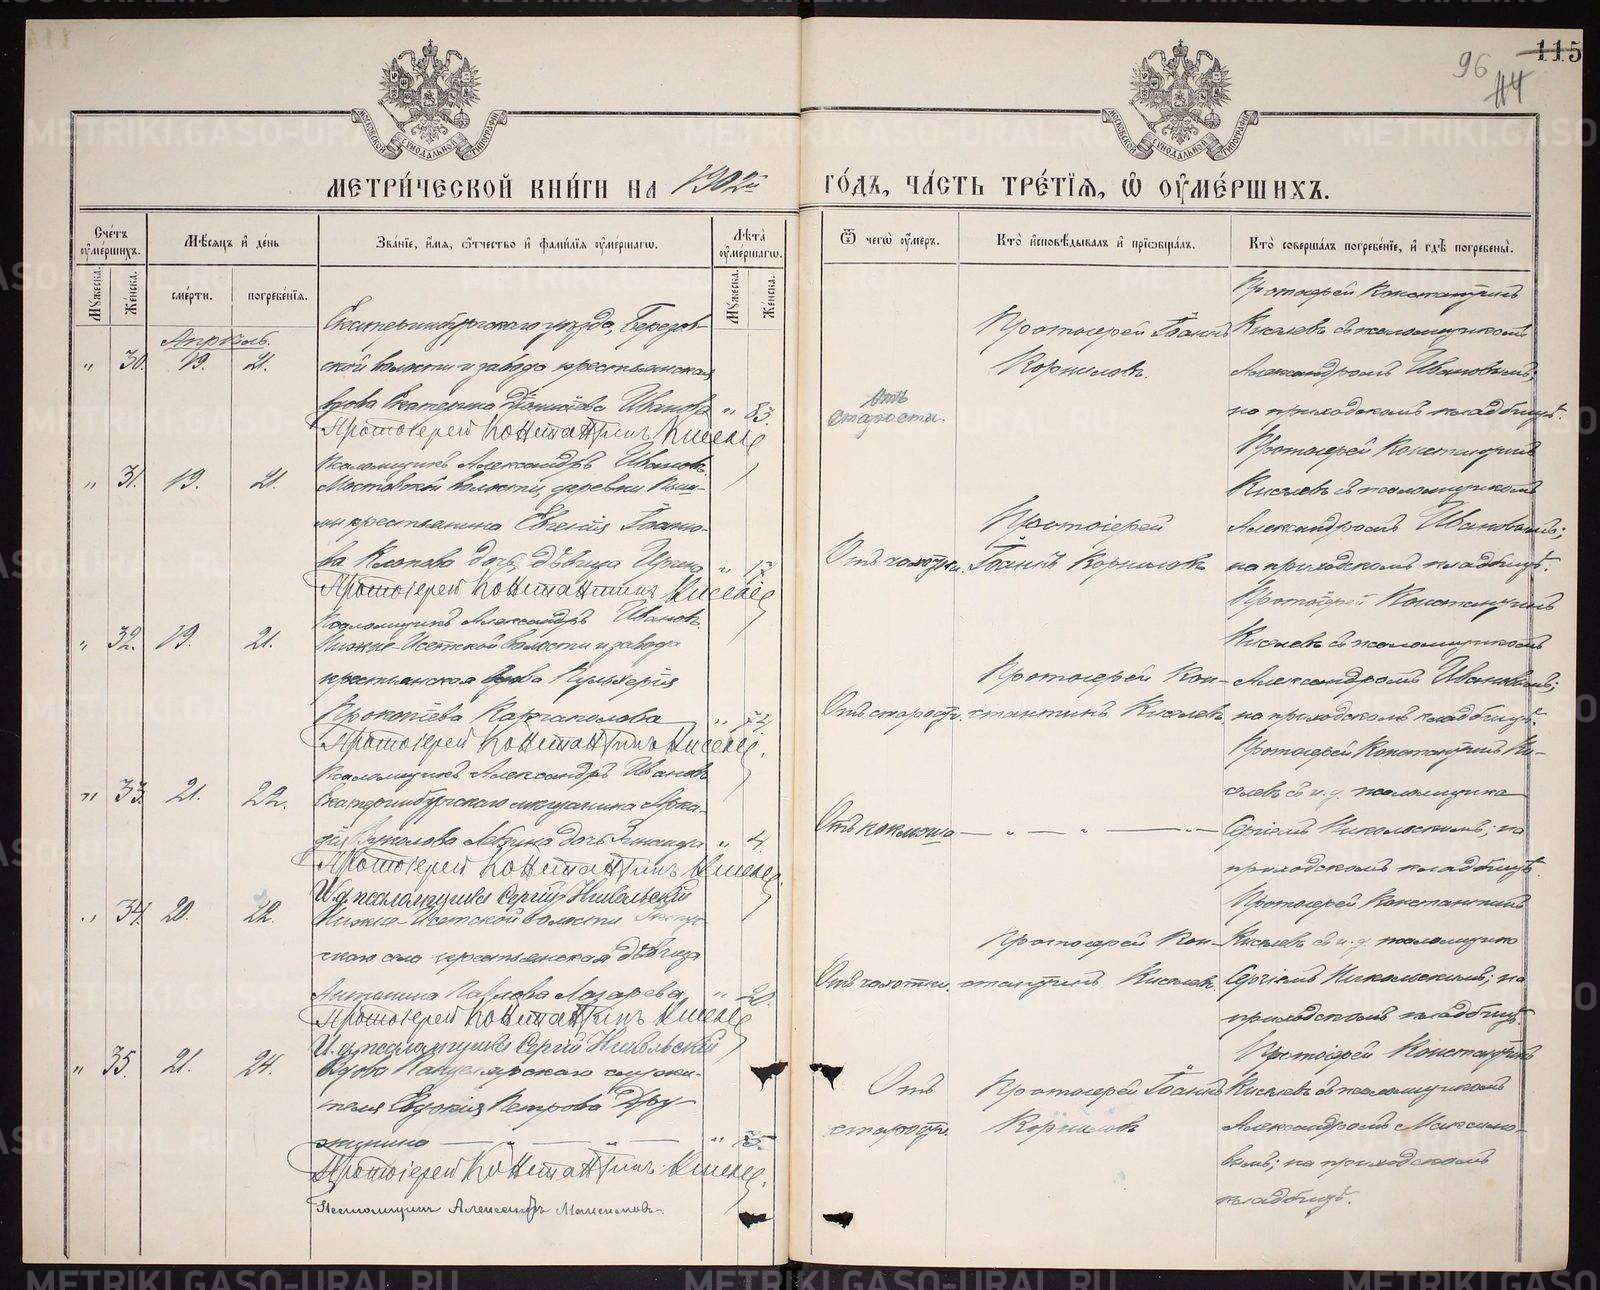 115
96
114
МЕТРИ́ЧЕСКОЙ КНИ́ГИ НА 1902й
ГО́ДЪ, ЧА́СТЬ ТРЕ́ТЇѦ, Ѿ ОУ҆МЕ́РШИХЪ.
Сче́тъ оу҆ме́ршихъ.
Мꙋ́жеска.
Же́нска.
Мѣ́сѧцъ и҆ де́нь
сме́рти.
погребе́нїѧ.
Зва́нїе, и҆́мѧ, ѻ҆́тчество и҆ фами́лїѧ оу҆ме́ршагѡ.
Лѣ́та оу҆ме́ршагѡ.
Мꙋ́жеска.
Же́нска.
Ѿ чегѡ̀ оу҆́меръ.
Кто̀ и҆сповѣ́дывалъ и҆ прїѡбща́лъ.
Кто̀ соверша́лъ погребе́нїе, и҆ гдѣ̀ погребены̀.
Апрѣль.
" 30. 19. 21.
Екатеринбургскаго уѣзда, Березов-
ской волости и завода крестьянская
вдова Екатерина Діонисіева Иванова " 83.
Протоіерей Константинъ Киселев
Псаломщикъ Александръ Ивановъ
Отъ
старости.
Протоіерей Іоаннъ
Корниловъ.
Протоіерей Константинъ
Киселевъ съ псаломщикомъ
Александромъ Ивановымъ;
на приходскомъ кладбищѣ.
" 31. 19. 21.
Мостовской волости, деревни Пыш-
мы крестьянина Евгенія Іоанно-
ва Клопова дочь, дѣвица Ирина " 17
Протоіерей Константинъ Киселев
Псаломщикъ Александръ Ивановъ.
Отъ чахотки.
Протоіерей
Іоаннъ Корниловъ
Протоіерей Константинъ
Киселевъ съ псаломщикомъ
Александромъ Ивановымъ;
на приходскомъ кладбищѣ.
" 32. 19. 21.
Нижне-Исетской волости и завода
крестьянская вдова Пульхерія
Прокопіева Каргаполова " 72
Протоіерей Константинъ Киселев.
Псаломщикъ Александръ Ивановъ
Отъ старости.
Протоіерей Кон-
стантинъ Киселевъ
Протоіерей Константинъ
Киселевъ съ псаломщикомъ
Александромъ Ивановымъ;
на приходскомъ кладбищѣ.
" 33. 21. 22.
Екатеринбургскаго мѣщанина Арка-
дія Вуколова дочь " 4.
Протоіерей Константинъ Киселев.
И.д. псаломщика Сергій Никольскій
Отъ коклюша — " — " — " —
Протоіерей Константинъ Ки-
селевъ съ и.д. псаломщика
Сергіемъ Никольскимъ; на
приходскомъ кладбищѣ.
" 34. 20. 22.
Нижне-Исетской волости
скаго села крестьянская дѣвица
Антонина Павлова Лазарева " 20.
Протоіерей Константинъ Киселев
И.д. псаломщика Сергій Никольскій
Отъ чахотки.
Протоіерей Кон-
стантинъ Киселевъ.
Протоіерей Константинъ
Киселевъ съ и.д. псаломщика
Сергіемъ Никольскимъ; на
приходскомъ кладбищѣ.
" 35. 21. 24.
Вдова Канцелярскаго служи-
теля Евдокія Петрова Дру-
жинина — " — " — " 75.
Протоіерей Константинъ Киселев.
Псаломщикъ Александръ Максимовъ.
Отъ
старости.
Протоіерей Іоаннъ
Корниловъ
Протоіерей Константинъ
Киселевъ съ псаломщикомъ
Александромъ Максимо-
вымъ; на приходскомъ
кладбищѣ.
METRIKI.GASO-URAL.RU